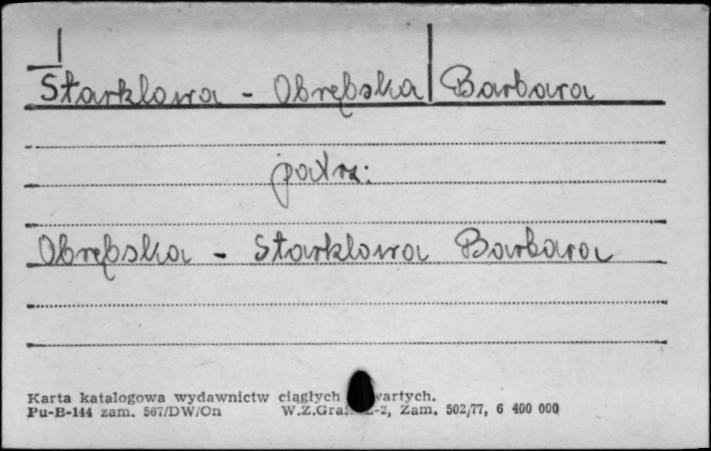 Starklowa - Obrębska Barbara
patrz:
Obrębska - Starklowa Barbara
Karta katalogowa wydawnictw ciągłych
Pu-B-144 zam. 567/DW/On W.Z.Graf. Z-2, Zam. 502/77, 6 400 000